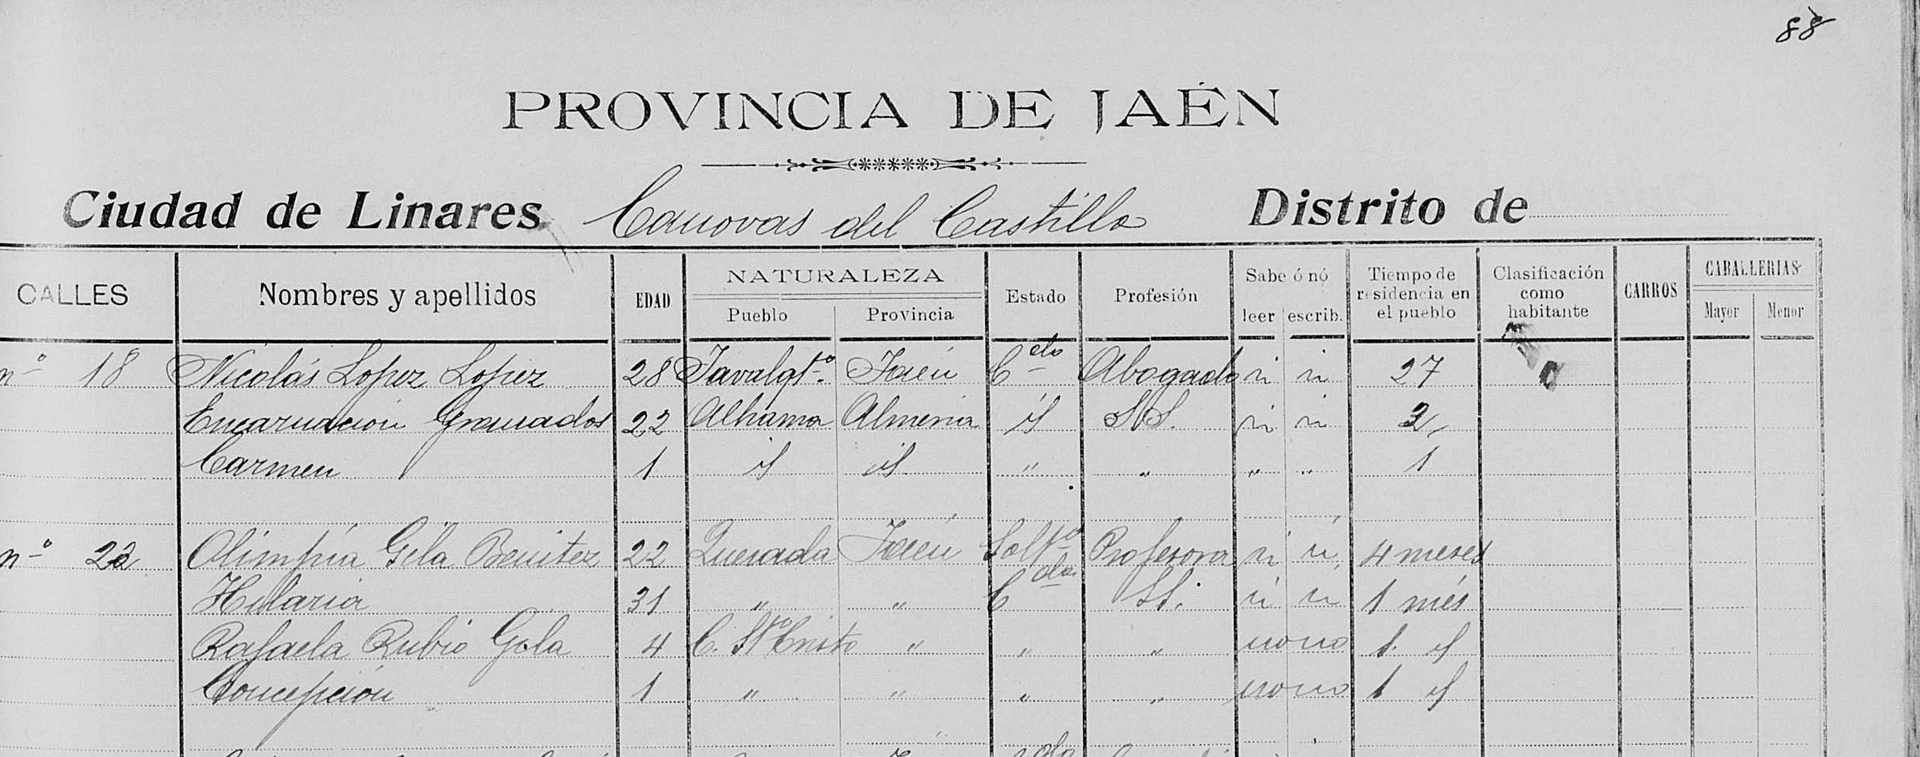 88
PROVINCIA DE JAÉN
Ciudad de Linares Canovas del Castillo Distrito de
CALLES Nombres y apellidos EDAD NATURALEZA Pueblo Provincia Estado Profesión Sabe ó nó leer escrib. Tiempo de residencia en el pueblo Clasificación como habitante CARROS CABALLERIAS Mayor Menor
nº 18 Nicolás Lopez Lopez 28 Javalqtº. Jaén Cdo Abogado si si 27
Encarnacion Granados 22 Alhama Almeria id SS. si si 2
Carmen 1 id id. " " " " 1
nº 22 Olimpia Gila Benitez 22 Quesada Jaén Soltª Profesora si si 4 meses
Hilaria 31 " " Cda S.S. si si 1 més
Rafaela Rubio Gila 4 C. Stº Cristo " " " no no 1 id
Concepción 1 " " " " no no 1 id